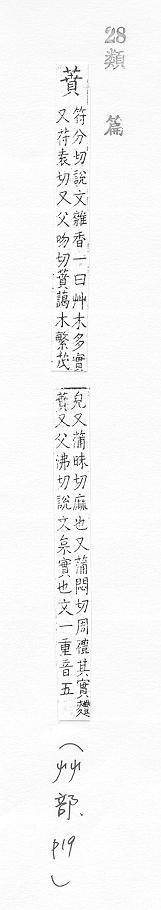 28類篇
蕡
符分切說文雜香一曰艸木多實
又苻袁切又父吻切蕡藹木繁茂
皃又蒲昧切麻也又蒲悶切周禮其實麷
蕡又父沸切說文枲實也文一重音五
(艸部、p19)